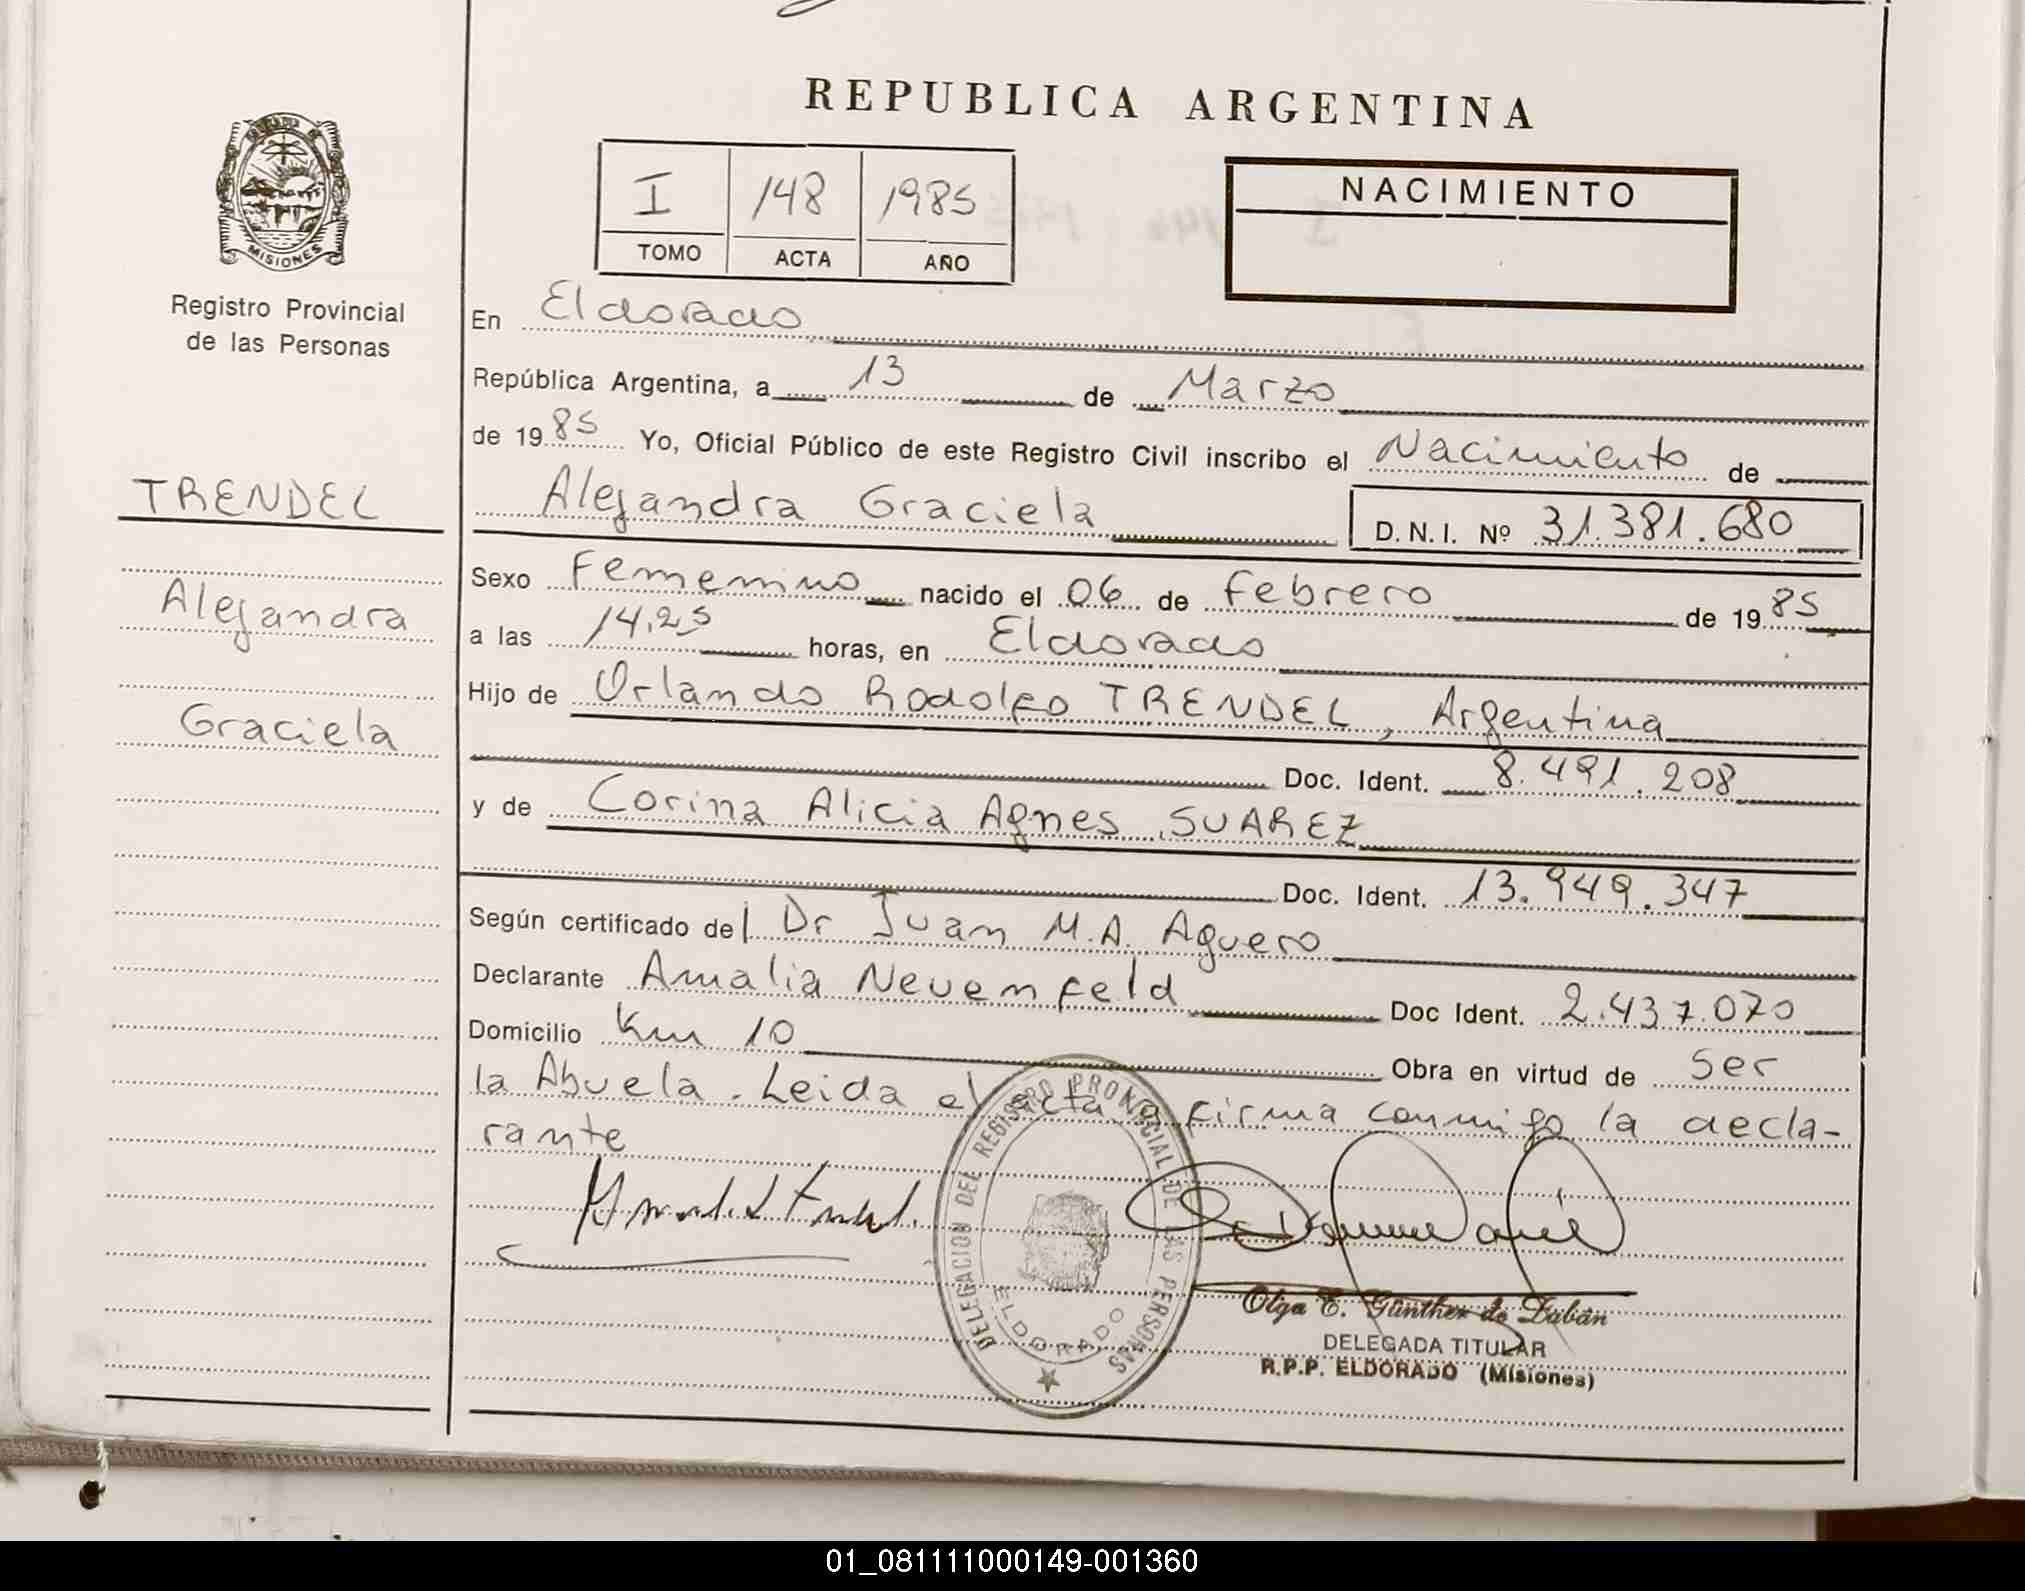 REPUBLICA ARGENTINA
MISIONES
Registro Provincial
de las Personas
I 148 1985
TOMO ACTA AÑO
NACIMIENTO
TRENDEL
Alejandra
Graciela
En Eldorado
República Argentina, a 13 de Marzo
de 1985 Yo, Oficial Público de este Registro Civil inscribo el Nacimiento de
Alejandra Graciela D.N.I. Nº 31.381.680
Sexo Femenino nacido el 06 de Febrero de 1985
a las 14,25 horas, en Eldorado
Hijo de Orlando Rodolfo TRENDEL, Argentina
Doc. Ident. 8.491.208
y de Corina Alicia Agnes SUAREZ
Doc. Ident. 13.949.347
Según certificado del Dr Juan M.A. Aguero
Declarante Amalia Neuenfeld Doc Ident. 2.437.070
Domicilio Km 10 Obra en virtud de ser
la Abuela. Leida el acta firma conmigo la decla-
rante
DELEGACION DEL REGISTRO PROVINCIAL DE LAS PERSONAS
ELDORADO
Olga E. Günther de Zabán
DELEGADA TITULAR
R.P.P. ELDORADO (Misiones)
01_081111000149-001360